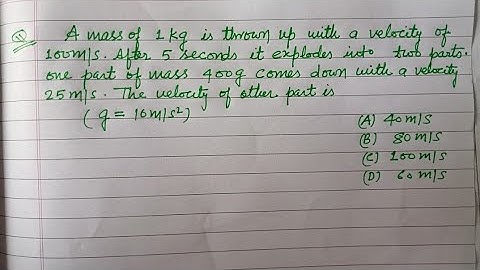 Q A mass of 1 kg is thrown up with a velocity of
100m/s. After 5 seconds it explodes into two parts.
one part of mass 400g comes down with a velocity
25m/s. The velocity of other part is
( g = 10m/s²)
(A) 40m/s
(B) 80m/s
(C) 100m/s
(D) 60m/s